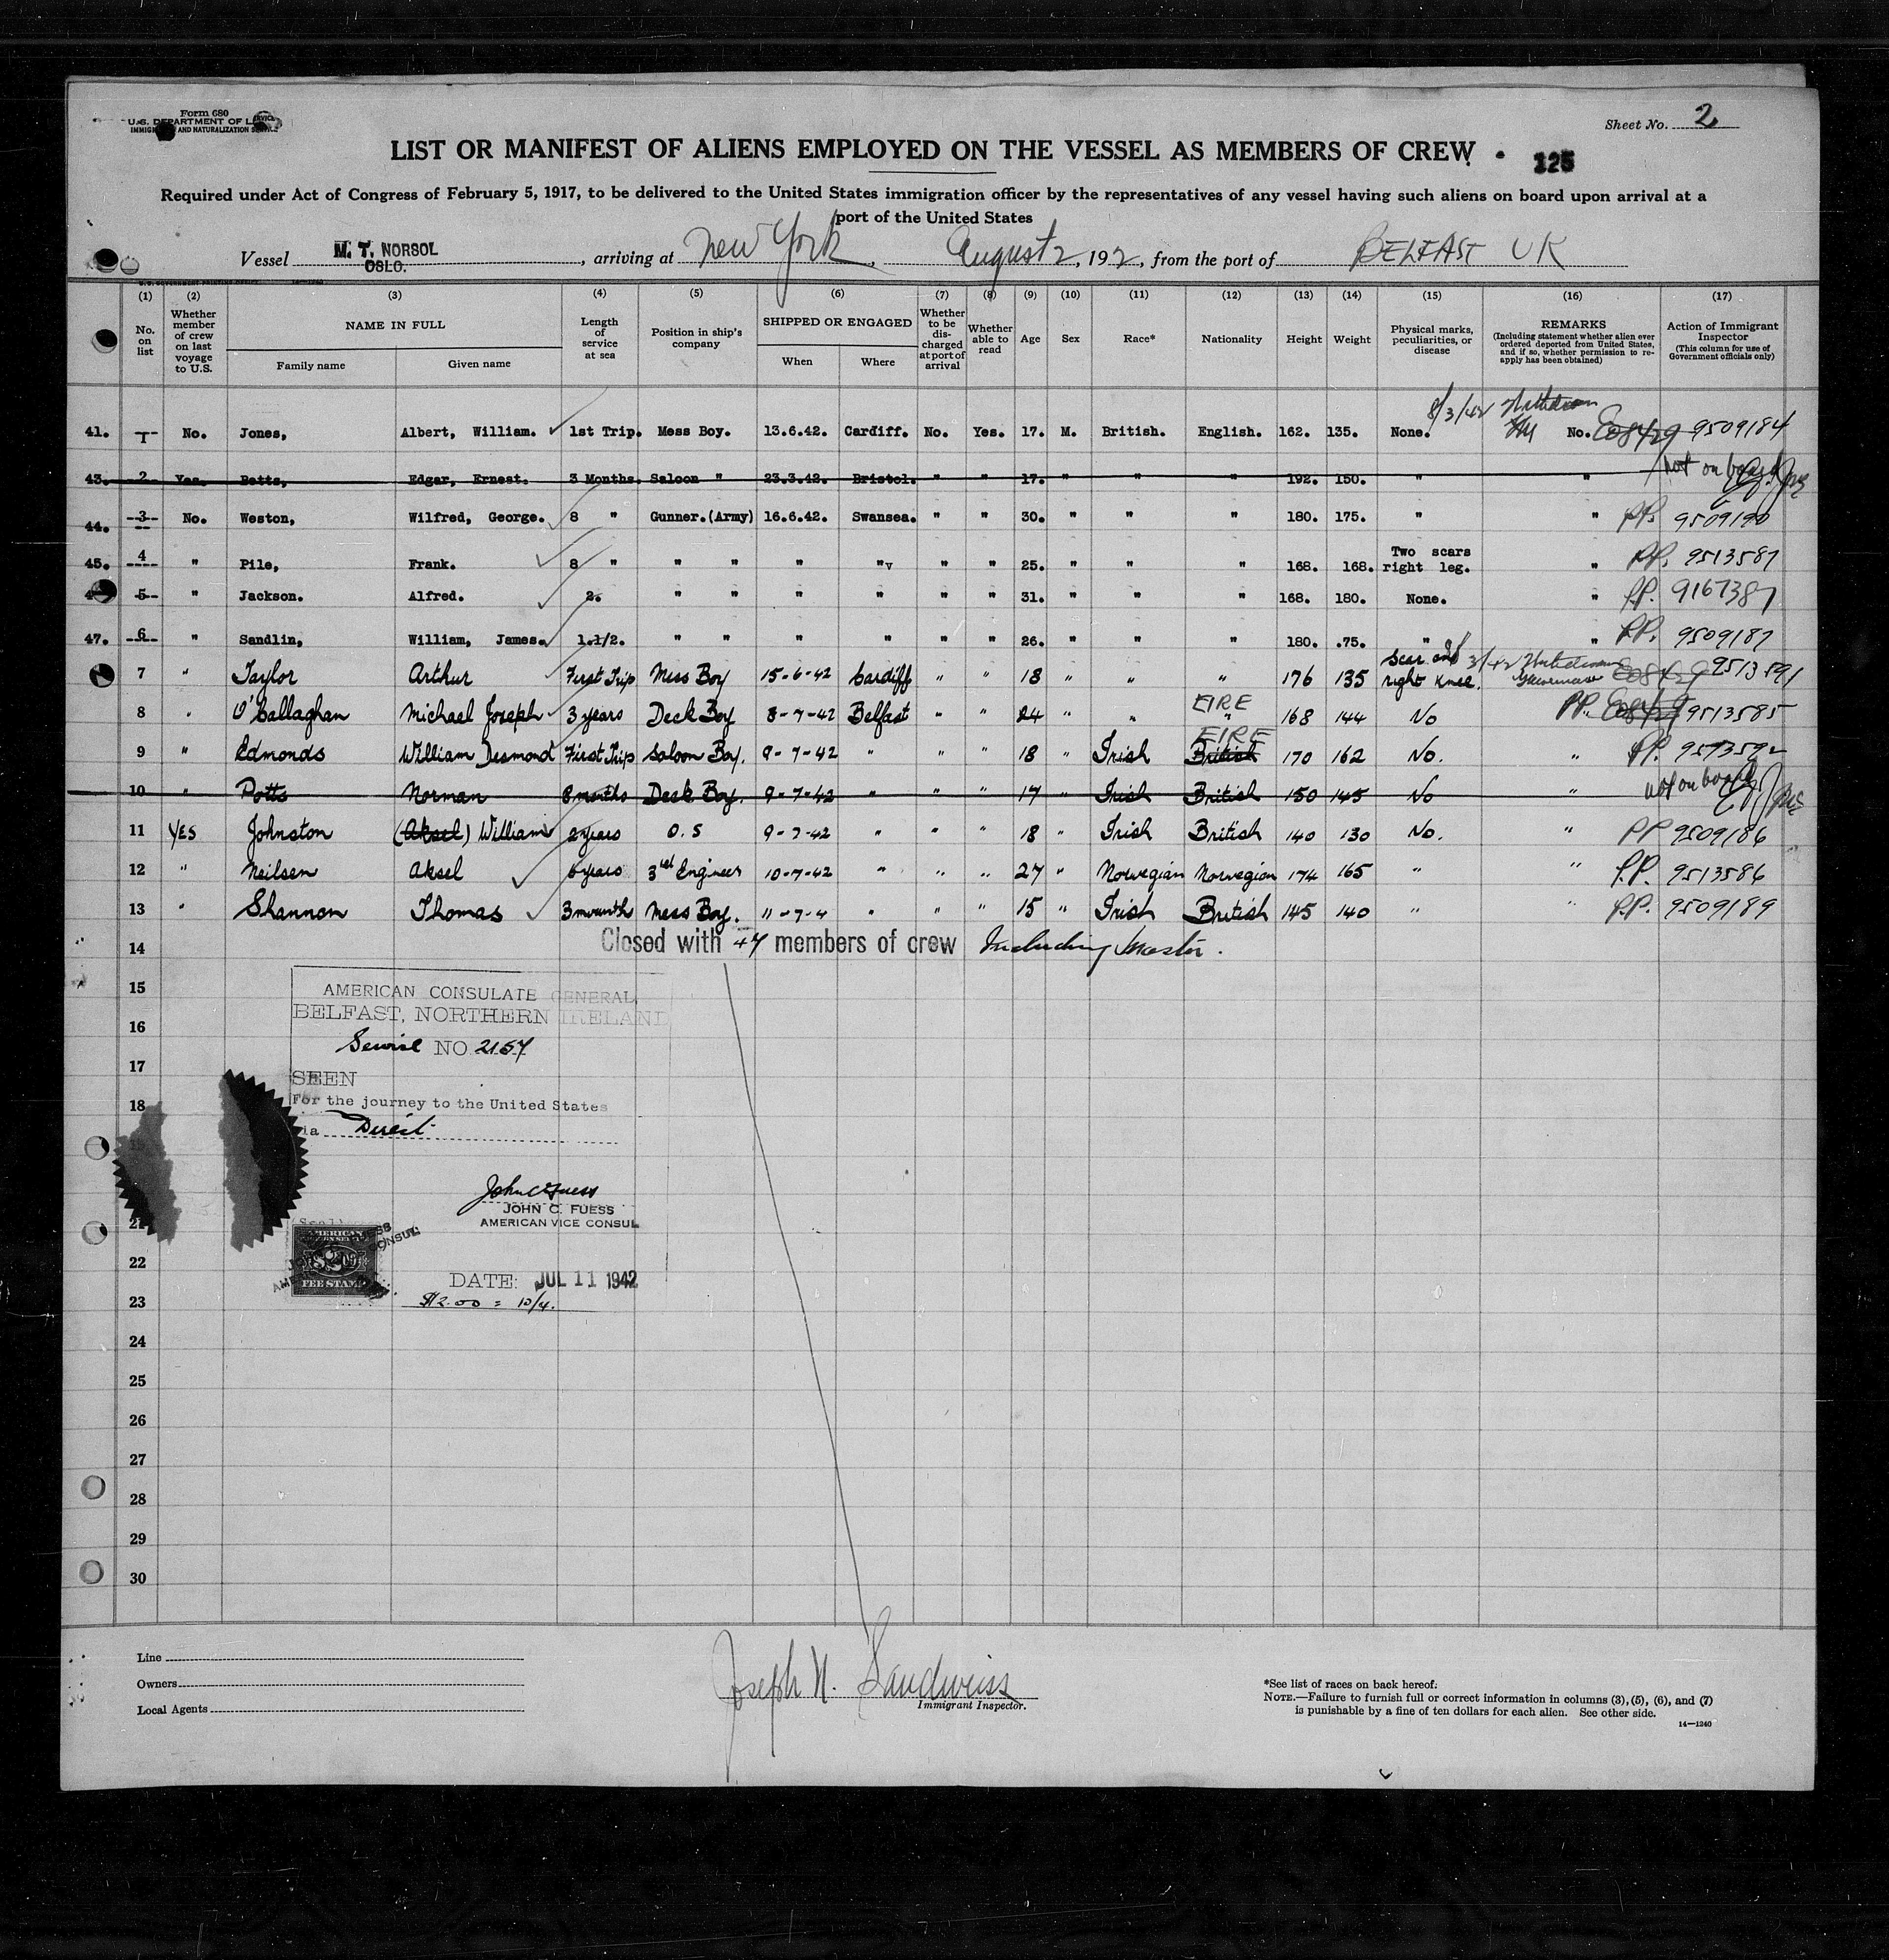 Form 680
U.S. DEPARTMENT OF
IMMIGRATION AND NATURALIZATION SERVICE
Sheet No. 2
LIST OR MANIFEST OF ALIENS EMPLOYED ON THE VESSEL AS MEMBERS OF CREW
125
Required under Act of Congress of February 5, 1917, to be delivered to the United States immigration officer by the representatives of any vessel having such aliens on board upon arrival at a
port of the United States
Vessel M. T. NORSOL OSLO., arriving at New York, August 2, 192, from the port of BELFAST UK
(1) (2) (3) (4) (5) (6) (7) (8) (9) (10) (11) (12) (13) (14) (15) (16) (17)
No. on list
Whether member of crew on last voyage to U.S.
NAME IN FULL
Family name
Given name
Length of service at sea
Position in ship's company
SHIPPED OR ENGAGED
When
Where
Whether to be discharged at port of arrival
Whether able to read
Age
Sex
Race*
Nationality
Height
Weight
Physical marks, peculiarities, or disease
REMARKS
(Including statement whether alien ever ordered deported from United States, and if so, whether permission to reapply has been obtained)
Action of Immigrant Inspector
(This column for use of Government officials only)
8/3/42
41. 1 No. Jones, Albert, William. 1st Trip. Mess Boy. 13.6.42. Cardiff. No. Yes. 17. M. British. English. 162. 135. None. No. 9509184
43. 2 Yes. Betts, Edgar, Ernest. 3 Months. Saloon " 23.3.42. Bristol. " " 17. " " " 192. 150. " " not on board
44. 3 No. Weston, Wilfred, George. 8 " Gunner.(Army) 16.6.42. Swansea. " " 30. " " " 180. 175. " " P.P. 9509190
45. 4 " Pile, Frank. 8 " " " " " " " 25. " " " 168. 168. Two scars right leg. " P.P. 9513587
5 " Jackson. Alfred. 2. " " " " " " 31. " " " 168. 180. None. " P.P. 9167387
47. 6 " Sandlin, William, James. 1.1/2. " " " " " " 26. " " " 180. .75. " " P.P. 9509187
7 " Taylor Arthur First Trip Mess Boy 15-6-42 Cardiff " " 18 " " " 176 135 Scar and right knee. 9513591
8 " O'Callaghan Michael Joseph 3 years Deck Boy 8-7-42 Belfast " " 24 " " EIRE 168 144 No P.P. 9513585
9 " Edmonds William Desmond First Trip Saloon Boy. 9-7-42 " " " 18 " Irish British EIRE 170 162 No. " P.P. 9513592
10 " Potts Norman 8 months Deck Boy. 9-7-42 " " " 17 " Irish British 150 145 No " not on board
11 YES Johnston (Aksel) William 2 years O.S 9-7-42 " " " 18 " Irish British 140 130 No. " PP 9509186
12 " Neilsen Aksel 6 years 3rd Engineer 10-7-42 " " " 27 " Norwegian Norwegian 174 165 " " P.P. 9513586
13 " Shannon Thomas 3 month Mess Boy. 11-7-4 " " " 15 " Irish British 145 140 " " P.P. 9509189
14 Closed with 47 members of crew Including Master.
15
AMERICAN CONSULATE GENERAL,
BELFAST, NORTHERN IRELAND
16
NO. 2157
17
SEEN
18
For the journey to the United States
via Direct
JOHN C. FUESS
AMERICAN VICE CONSUL
21
22
AMERICAN
FEE STAMP
DATE: JUL 11 1942
$2.00 = 10/4.
23
24
25
26
27
28
29
30
Line
Owners
Local Agents
Joseph N. Sandweiss
Immigrant Inspector.
*See list of races on back hereof.
NOTE.—Failure to furnish full or correct information in columns (3), (5), (6), and (7)
is punishable by a fine of ten dollars for each alien. See other side.
14—1240